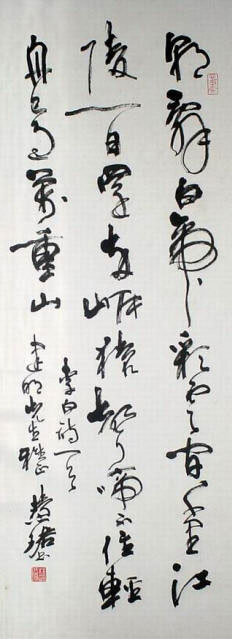 朝辭白帝彩雲間千里江
陵一日還兩岸猿聲啼不住輕
舟已過萬重山
李白詩一首
建明先生雅正 慧珺